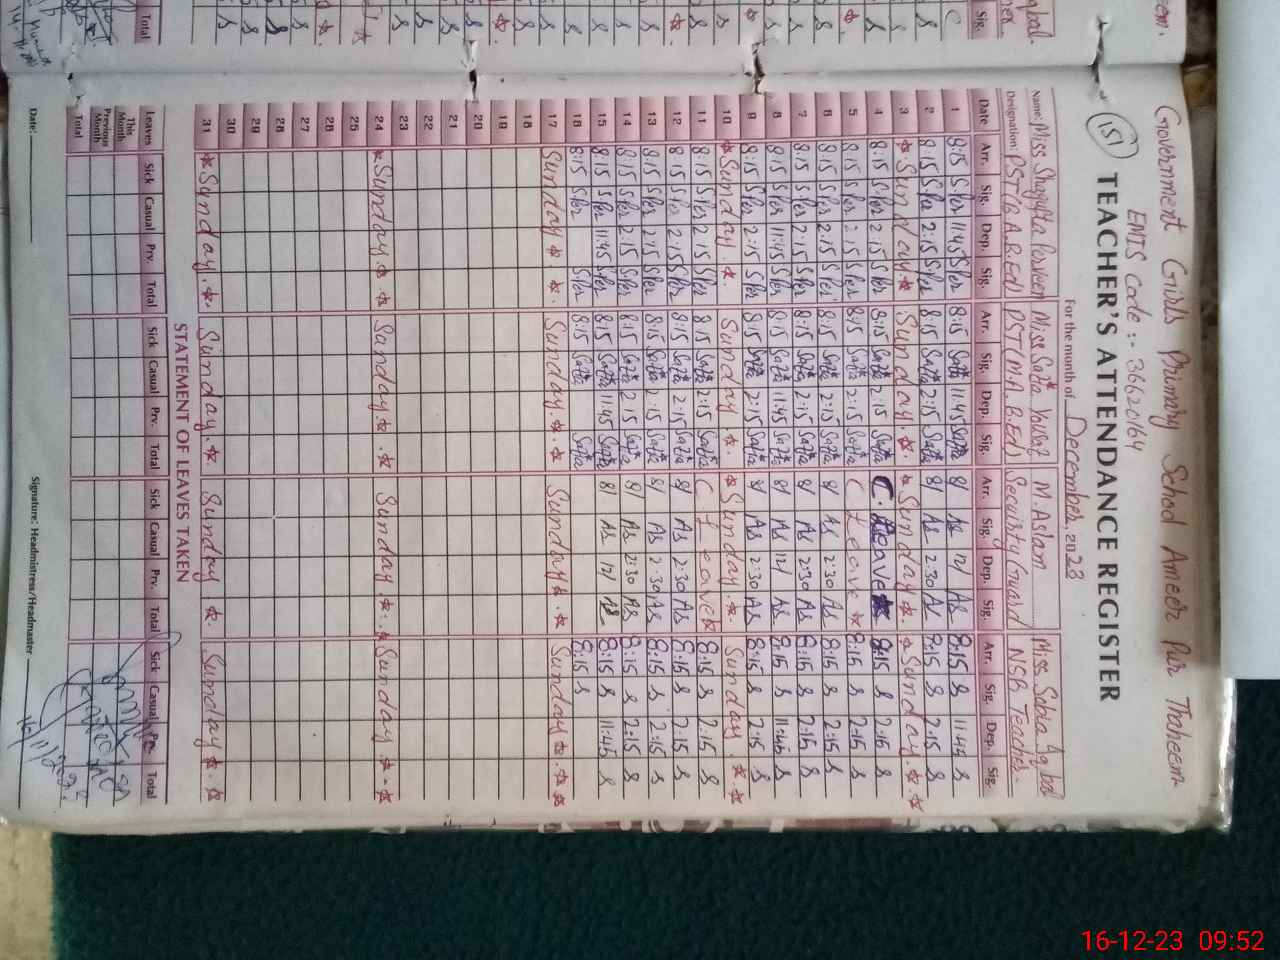 Government Girls Primary School Ameer Pur Thaheem
EMIS Code :- 36620164
(151) TEACHER'S ATTENDANCE REGISTER
For the month of December, 2023
Name: Miss Shagufta Parveen Miss Safia Yousaf M. Aslam Miss Sabia Iqbal
Designation: PST(B.A.B.Ed) PST(M.A.B.Ed) Security Guard NSB Teacher
Date Arr. Sig. Dep. Sig. Arr. Sig. Dep. Sig. Arr. Sig. Dep. Sig. Arr. Sig. Dep. Sig.
1 8:15 Sper 11:45 Sper 8:15 Safia 11:45 Safia 8/ As 12/ As 8:15 11:45
2 8:15 Sper 2:15 Sper 8:15 Safia 2:15 Safia 8/ As 2:30 As 8:15 2:15
3 Sunday Sunday Sunday Sunday
4 8:15 Sper 2:15 Sper 8:15 Safia 2:15 Safia C. Leave 8:15 2:15
5 8:15 Sper 2:15 Sper 8:15 Safia 2:15 Safia C Leave 8:15 2:15
6 8:15 Sper 2:15 Sper 8:15 Safia 2:15 Safia 8/ As 2:30 As 8:15 2:15
7 8:15 Sper 2:15 Sper 8:15 Safia 2:15 Safia 8/ As 2:30 As 8:15 2:15
8 8:15 Sper 11:45 Sper 8:15 Safia 11:45 Safia 8/ As 12/ As 8:15 11:45
9 8:15 Sper 2:15 Sper 8:15 Safia 2:15 Safia 8/ As 2:30 As 8:15 2:15
10 Sunday Sunday Sunday Sunday
11 8:15 Sper 2:15 Sper 8:15 Safia 2:15 Safia C Leave 8:15 2:15
12 8:15 Sper 2:15 Sper 8:15 Safia 2:15 Safia 8/ As 2:30 As 8:15 2:15
13 8:15 Sper 2:15 Sper 8:15 Safia 2:15 Safia 8/ As 2:30 As 8:15 2:15
14 8:15 Sper 2:15 Sper 8:15 Safia 2:15 Safia 8/ As 2:30 As 8:15 2:15
15 8:15 Sper 11:45 Sper 8:15 Safia 11:45 Safia 8/ As 12/ As 8:15 11:45
16 8:15 Sper Sper 8:15 Safia Safia 8:15
17 Sunday Sunday Sunday Sunday
18
19
20
21
22
23
24 Sunday Sunday Sunday Sunday
25
26
27
28
29
30
31 Sunday Sunday Sunday Sunday
STATEMENT OF LEAVES TAKEN
Leaves Sick Casual Prv. Total Sick Casual Prv. Total Sick Casual Prv. Total Sick Casual Prv. Total
This Month
Previous Month
Total
Date: Signature: Headmistress/Headmaster
16-12-23 09:52